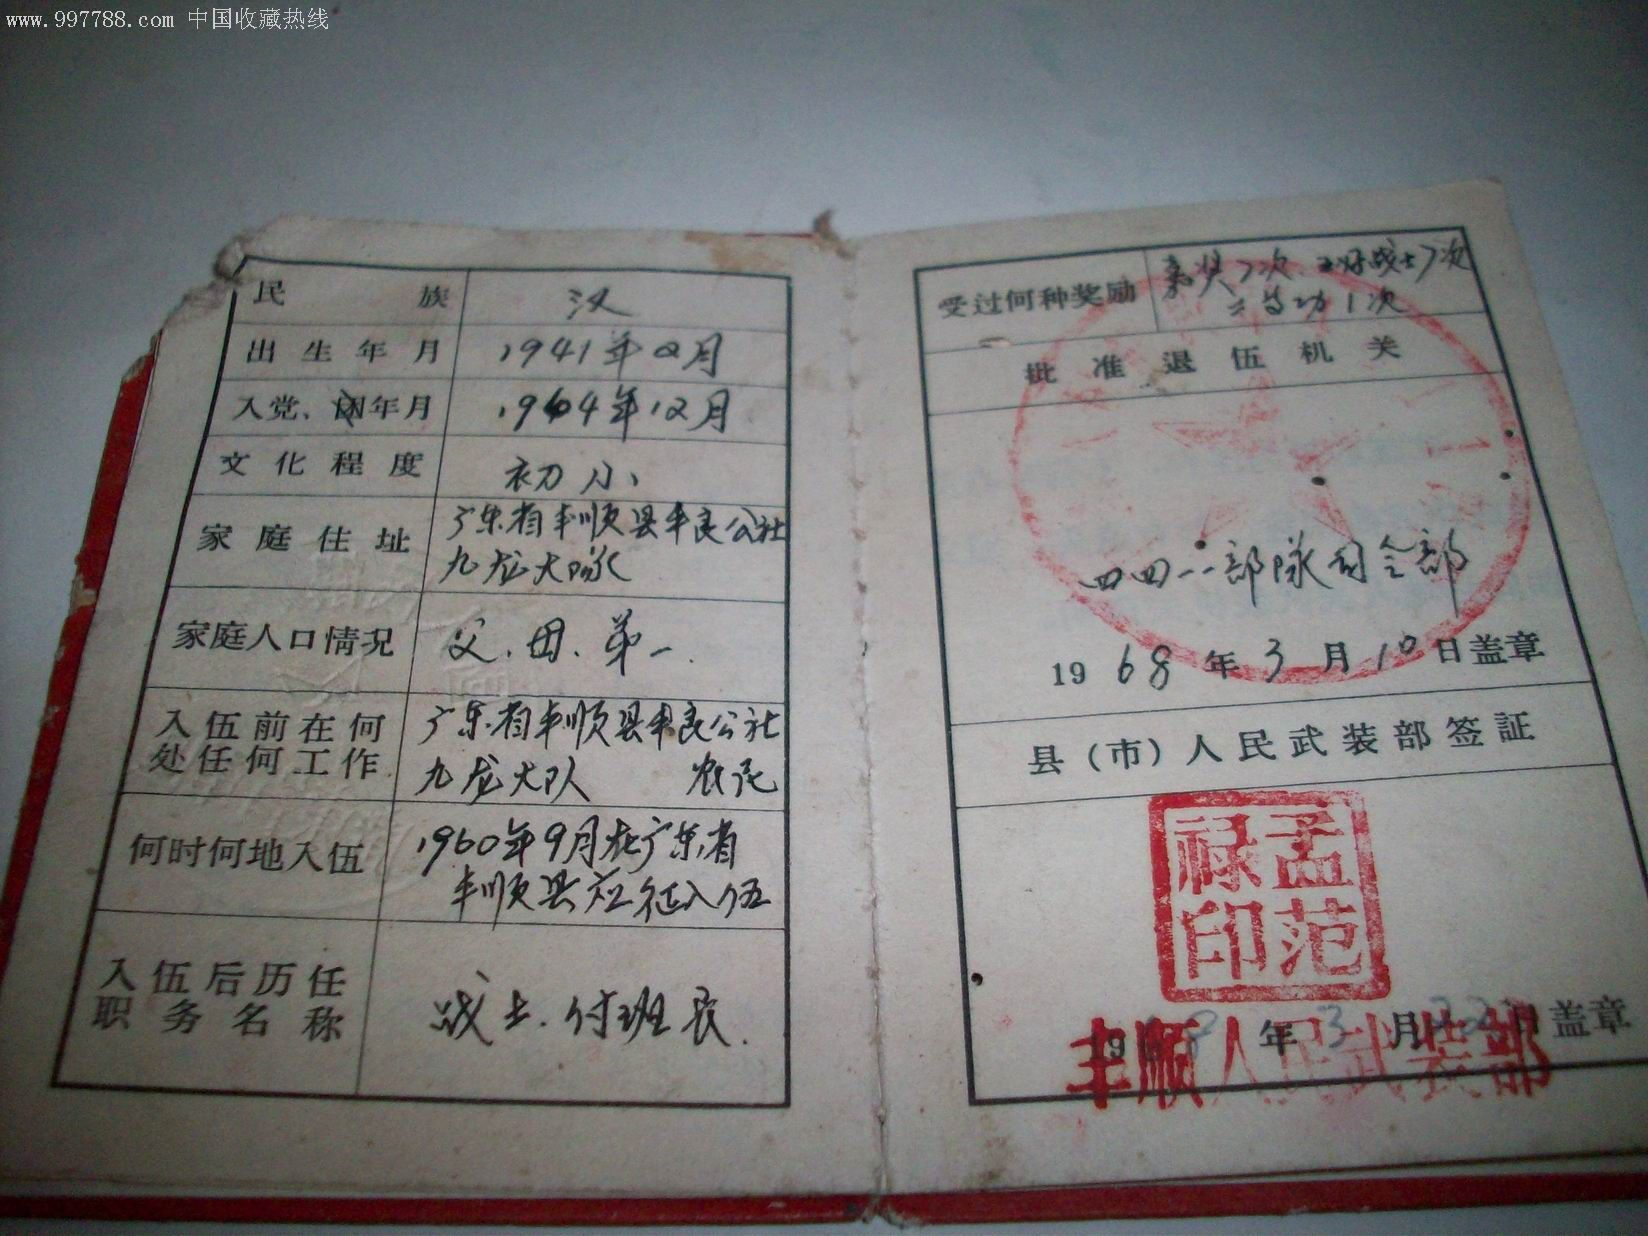 www.997788.com 中国收藏热线
民族 汉
出生年月 1941年12月
入党、团年月 1964年12月
文化程度 初小
家庭住址 广东省丰顺县丰良公社
九龙大队
家庭人口情况 父、母、弟一.
入伍前在何 广东省丰顺县丰良公社
处任何工作 九龙大队 农民
何时何地入伍 1960年9月在广东省
丰顺县应征入伍
入伍后历任
职务名称 战士、付班长.
受过何种奖励 嘉奖7次、五好战士7次
三等功1次
批准退伍机关
四四一一部隊司令部
1968年3月10日盖章
县(市)人民武装部签証
孟范
禄印
1968年3月22日盖章
丰顺人民武装部